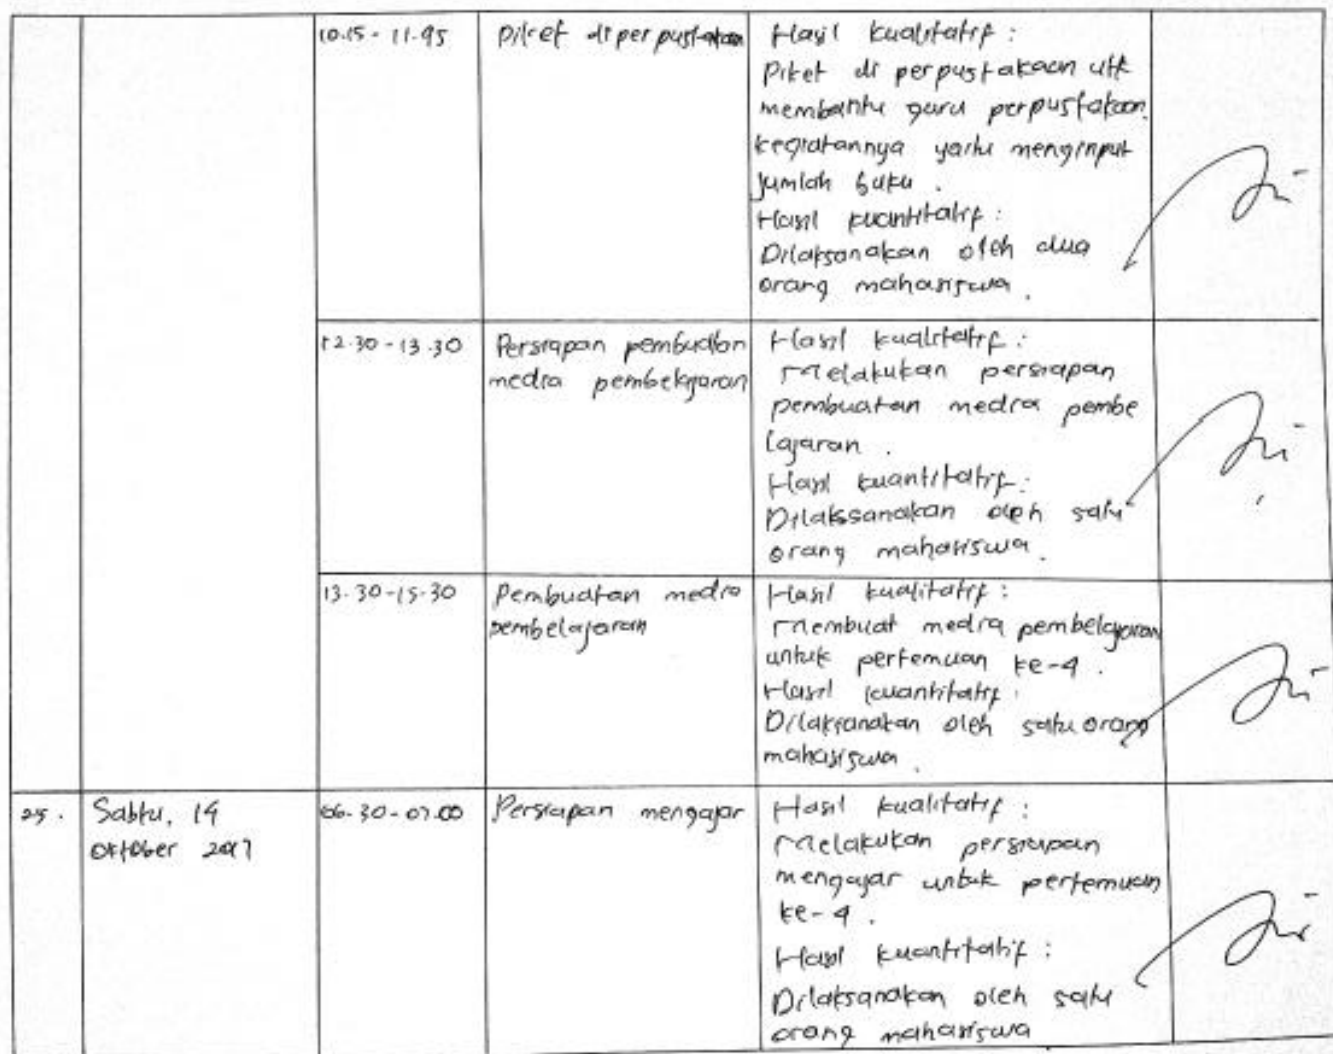 10.15 - 11.45
Piket di perpustakaan
Hasil kualitatif :
Piket di perpustakaan utk
membantu guru perpustakaan.
kegiatannya yaitu menginput
jumlah buku .
Hasil kuantitatif :
Dilaksanakan oleh dua
orang mahasiswa .
12.30 - 13.30
Persiapan pembuatan
media pembelajaran
Hasil kualitatif :
Melakukan persiapan
pembuatan media pembe
lajaran .
Hasil kuantitatif :
Dilakssanakan oleh satu
orang mahasiswa .
13.30 - 15.30
Pembuatan media
pembelajaran
Hasil kualitatif :
Membuat media pembelajaran
untuk pertemuan ke-4 .
Hasil kuantitatif :
Dilaksanakan oleh satu orang
mahasiswa .
25 .
Sabtu, 14
Oktober 2017
06.30 - 07.00
Persiapan mengajar
Hasil kualitatif :
Melakukan persiapan
mengajar untuk pertemuan
ke-4 .
Hasil kuantitatif :
Dilaksanakan oleh satu
orang mahasiswa